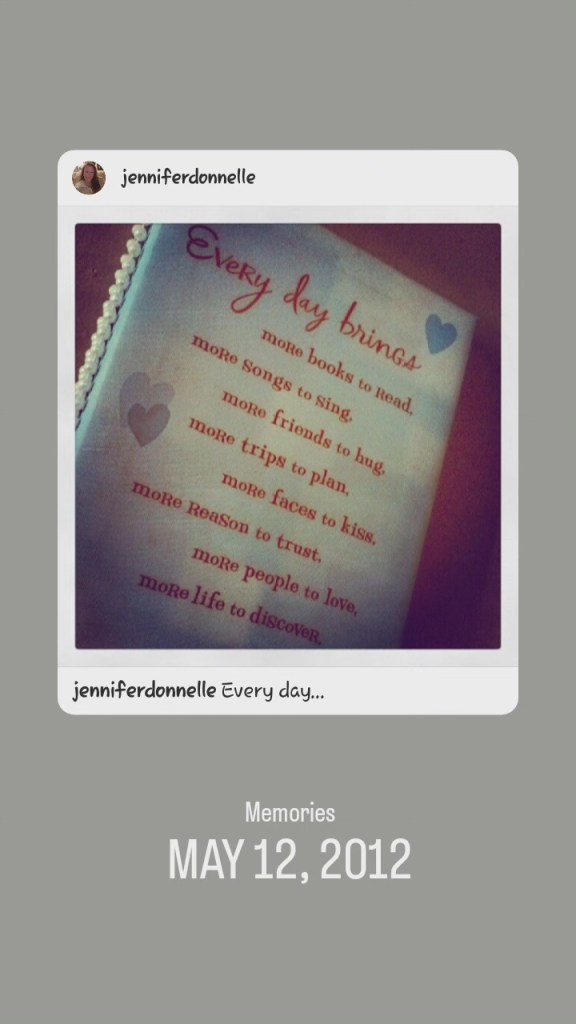 jenniferdonnelle
Every day brings
more books to read,
more songs to sing,
more friends to hug,
more trips to plan,
more faces to kiss,
more reason to trust,
more people to love,
more life to discover.
jenniferdonnelle Every day...
Memories
MAY 12, 2012